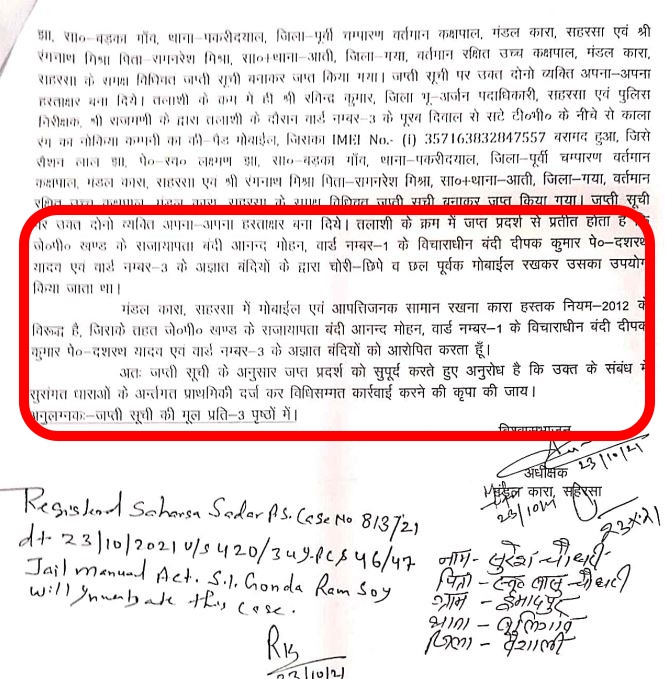 झा, सा०-बड़का गाँव, थाना-पकरीदयाल, जिला-पूर्वी चम्पारण वर्तमान कक्षपाल, मंडल कारा, सहरसा एवं श्री
रंगनाथ मिश्रा पिता-रामनरेश मिश्रा, सा०+थाना-आती, जिला-गया, वर्तमान रक्षित उच्च कक्षपाल, मंडल कारा,
सहरसा के समक्ष विधिवत जप्ती सूची बनाकर जप्त किया गया। जप्ती सूची पर उक्त दोनो व्यक्ति अपना-अपना
हस्ताक्षर बना दिये। तलाशी के क्रम में ही श्री रविन्द्र कुमार, जिला भू-अर्जन पदाधिकारी, सहरसा एवं पुलिस
निरीक्षक, श्री राजमणी के द्वारा तलाशी के दौरान वार्ड नम्बर-3 के पूरब दिवाल से सटे टी०पी० के नीचे से काला
रंग का नोकिया कम्पनी का की-पैड मोबाईल, जिसका IMEI No.- (i) 357163832847557 बरामद हुआ, जिसे
रौशन लाल झा, पे०-स्व० लक्ष्मण झा, सा०-बड़का गाँव, थाना-पकरीदयाल, जिला-पूर्वी चम्पारण वर्तमान
कक्षपाल, मंडल कारा, सहरसा एवं श्री रंगनाथ मिश्रा पिता-रामनरेश मिश्रा, सा०+थाना-आती, जिला-गया, वर्तमान
रक्षित उच्च कक्षपाल, मंडल कारा, सहरसा के समक्ष विधिवत जप्ती सूची बनाकर जप्त किया गया। जप्ती सूची
पर उक्त दोनो व्यक्ति अपना-अपना हस्ताक्षर बना दिये। तलाशी के क्रम में जप्त प्रदर्श से प्रतीत होता है कि
जे०पी० खण्ड के सजायाफ्ता बंदी आनन्द मोहन, वार्ड नम्बर-1 के विचाराधीन बंदी दीपक कुमार पे०-दशरथ
यादव एवं वार्ड नम्बर-3 के अज्ञात बंदियों के द्वारा चोरी-छिपे व छल पूर्वक मोबाईल रखकर उसका उपयोग
किया जाता था।
मंडल कारा, सहरसा में मोबाईल एवं आपत्तिजनक सामान रखना कारा हस्तक नियम-2012 के
विरूद्ध है, जिसके तहत जे०पी० खण्ड के सजायाफ्ता बंदी आनन्द मोहन, वार्ड नम्बर-1 के विचाराधीन बंदी दीपक
कुमार पे०-दशरथ यादव एवं वार्ड नम्बर-3 के अज्ञात बंदियों को आरोपित करता हूँ।
अतः जप्ती सूची के अनुसार जप्त प्रदर्श को सुपूर्द करते हुए अनुरोध है कि उक्त के संबंध में
सुसंगत धाराओं के अर्न्तगत प्राथमिकी दर्ज कर विधिसम्मत कार्रवाई करने की कृपा की जाय।
अनुलग्नकः-जप्ती सूची की मूल प्रति-3 पृष्ठों में।
विश्वासभाजन
23/10/21
अधीक्षक
मंडल कारा, सहरसा
23/10/21
23.X.21
Registered Saharsa Sadar P.S. Case No 813/21
dt 23/10/2021 U/S 420/34 I.P.C & 46/47
Jail manual Act. S.I. Gonda Ram Soy
will Investigate this case.
23/10/21
नाम- सुरेश चौधरी
पिता - स्व० लालु चौधरी
ग्राम - इमादपुर
थाना -
जिला - वैशाली